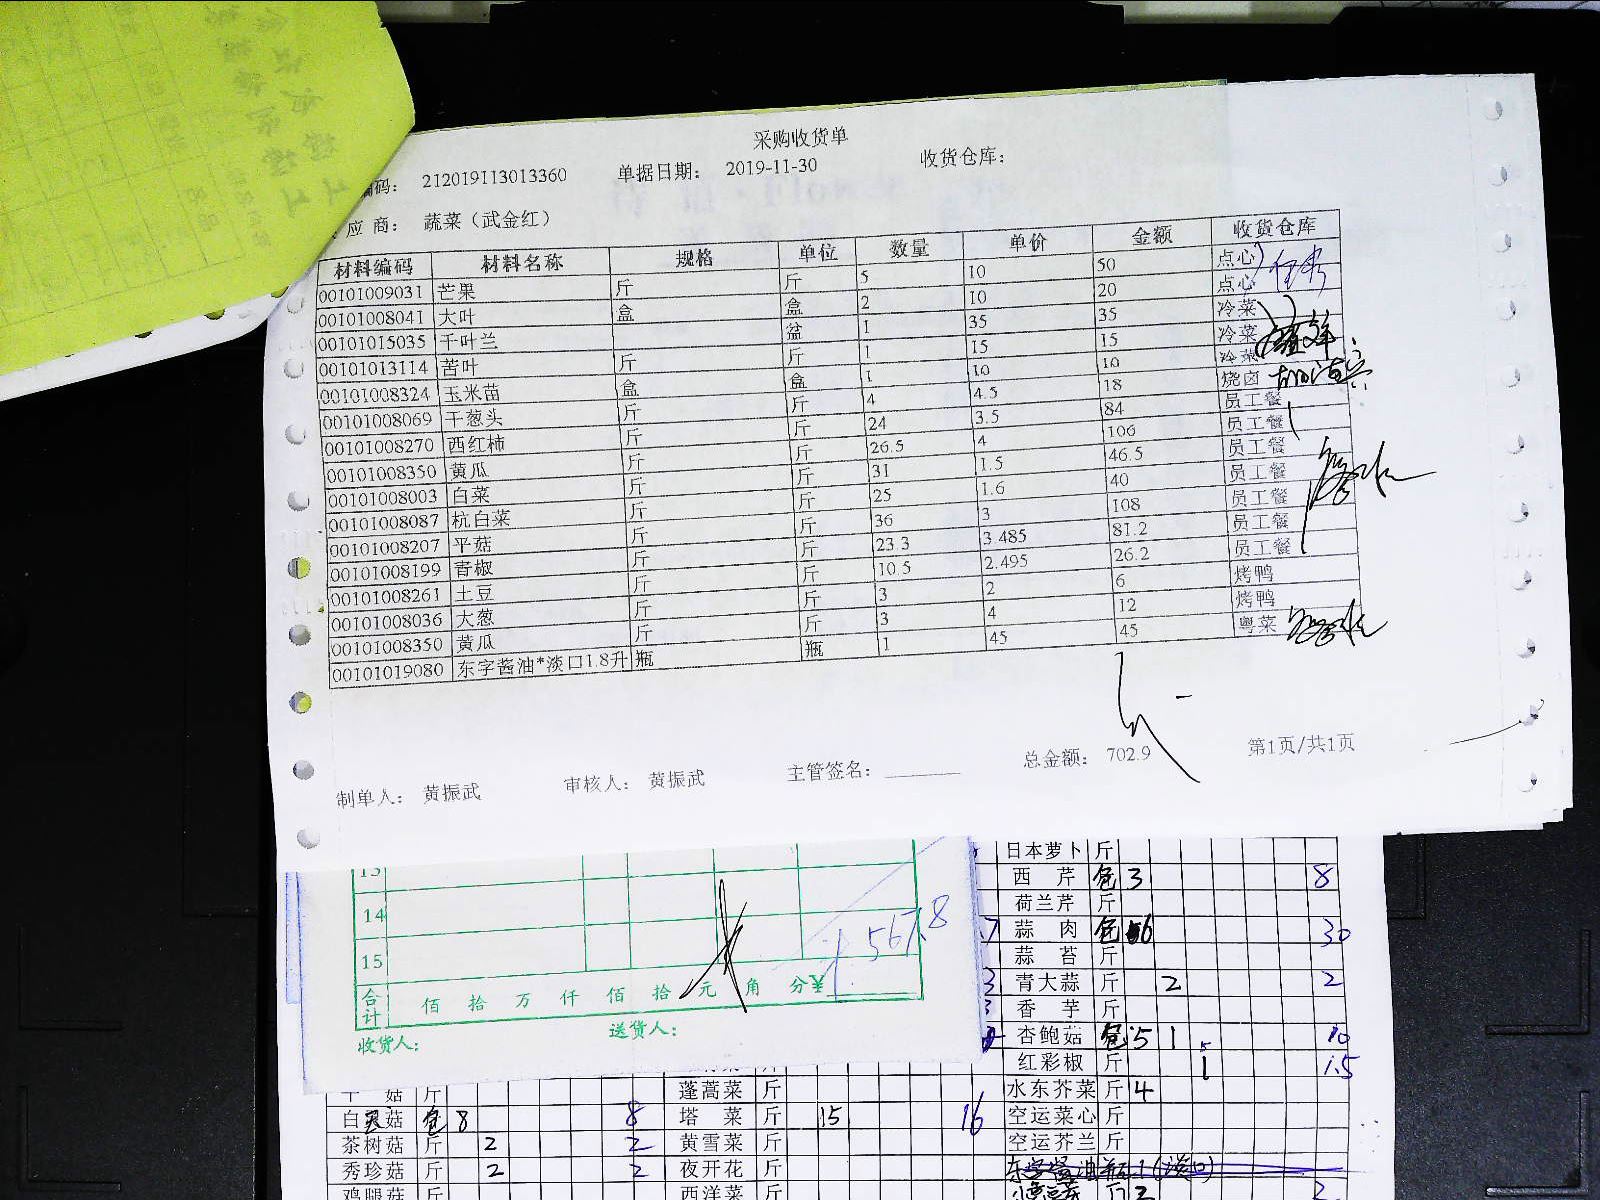 采购收货单
编码： 212019113013360 单据日期： 2019-11-30 收货仓库：
应商： 蔬菜（武金红）
材料编码 材料名称 规格 单位 数量 单价 金额 收货仓库
00101009031 芒果 斤 斤 5 10 50 点心
00101008041 大叶 盒 盒 2 10 20 点心
00101015035 千叶兰 盆 1 35 35 冷菜
00101013114 苦叶 斤 斤 1 15 15 冷菜
00101008324 玉米苗 盒 盒 1 10 10 冷菜
00101008069 干葱头 斤 斤 4 4.5 18 烧卤
00101008270 西红柿 斤 斤 24 3.5 84 员工餐
00101008350 黄瓜 斤 斤 26.5 4 106 员工餐
00101008003 白菜 斤 斤 31 1.5 46.5 员工餐
00101008087 杭白菜 斤 斤 25 1.6 40 员工餐
00101008207 平菇 斤 斤 36 3 108 员工餐
00101008199 青椒 斤 斤 23.3 3.485 81.2 员工餐
00101008261 土豆 斤 斤 10.5 2.495 26.2 员工餐
00101008036 大葱 斤 斤 3 2 6 烤鸭
00101008350 黄瓜 斤 斤 3 4 12 烤鸭
00101019080 东字酱油*淡口1.8升 瓶 瓶 1 45 45 粤菜
制单人： 黄振武 审核人： 黄振武 主管签名： 总金额： 702.9 第1页/共1页
13
14
15 567.8
合计 佰 拾 万 仟 佰 拾 元 角 分¥
收货人： 送货人：
日本萝卜 斤
西芹 包 3 8
荷兰芹 斤
蒜肉 包 6 30
蒜苔 斤
青大蒜 斤 2 2
香芋 斤
杏鲍菇 包 5 1 10
红彩椒 斤 1 1.5
菇 斤 蓬蒿菜 斤 水东芥菜 斤 4
白 菇 包 8 8 塔菜 斤 15 16 空运菜心 斤
茶树菇 斤 2 2 黄雪菜 斤 空运芥兰 斤
秀珍菇 斤 2 2 夜开花 斤
鸡腿菇 斤 西洋菜 斤